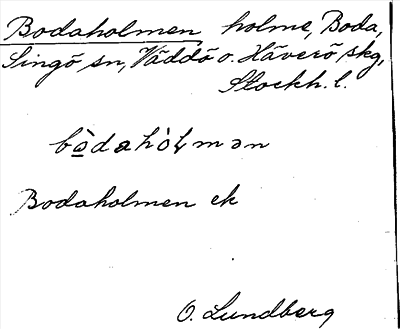 Bodaholmen holme, Boda,
Singö sn, Väddö o. Häverö skg,
Stockh. l.
bòdahòɫmən
Bodaholmen ek
O. Lundberg